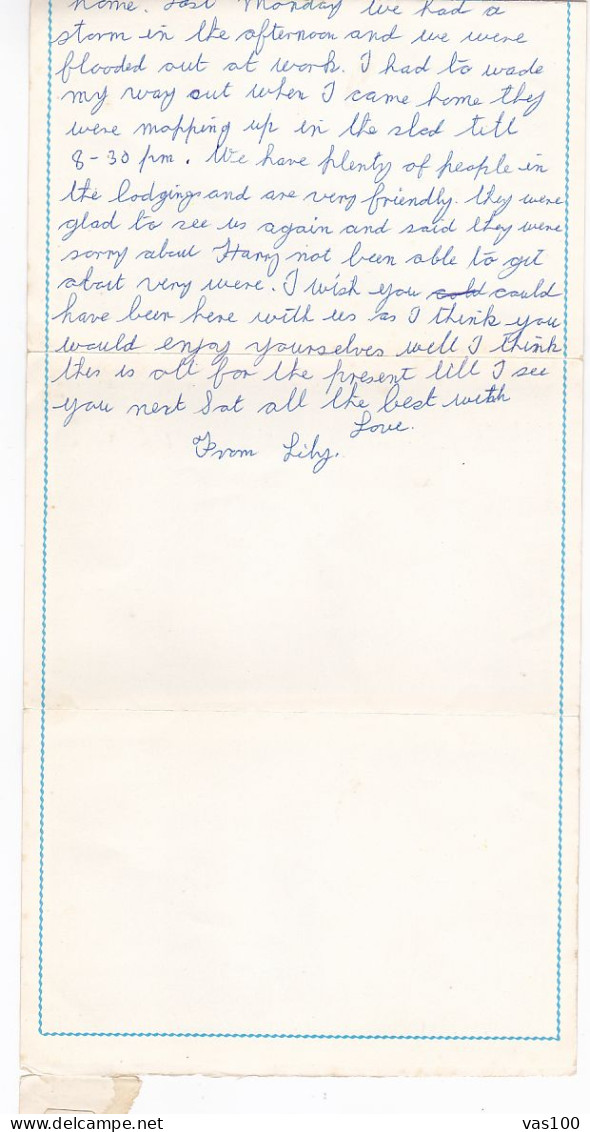 home. Last Monday we had a
storm in the afternoon and we were
flooded out at work. I had to wade
my way out when I came home they
were mopping up in the shed till
8-30 pm. We have plenty of people in
the lodgings and are very friendly. they were
glad to see us again and said they were
sorry about Harry not been able to get
about very were. I wish you cold could
have been here with us as I think you
would enjoy yourselves well I think
this is all for the present till I see
you next Sat all the best with
Love.
From Lily.
vas100
delcampe.net